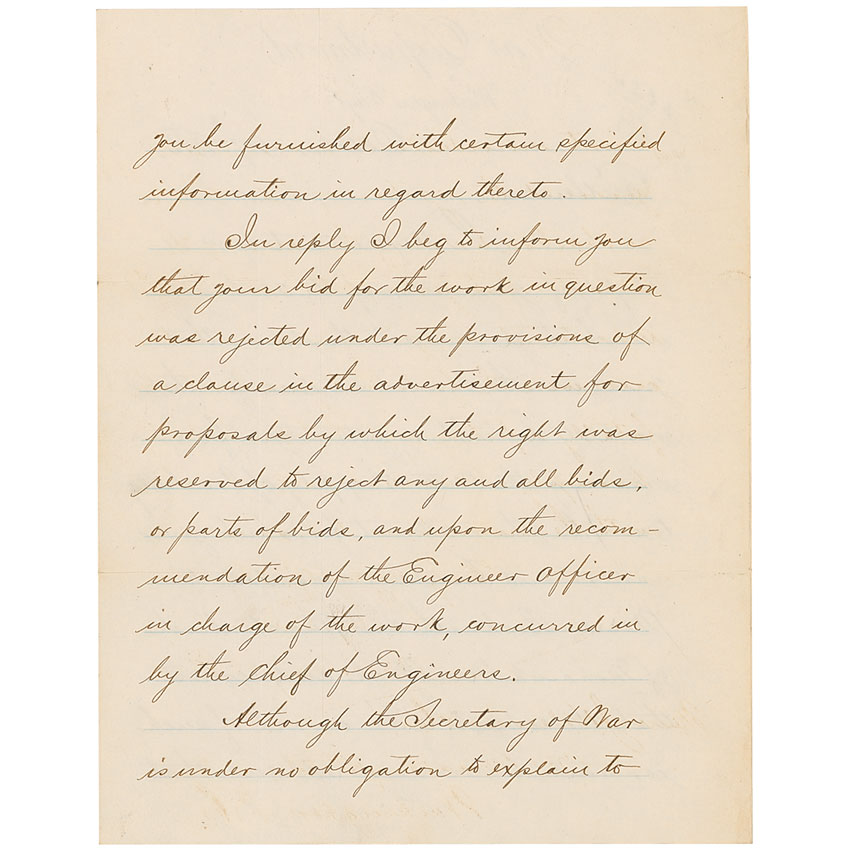 you be furnished with certain specified
information in regard thereto.
In reply I beg to inform you
that your bid for the work in question
was rejected under the provisions of
a clause in the advertisement for
proposals by which the right was
reserved to reject any and all bids,
or parts of bids, and upon the recom-
mendation of the Engineer Officer
in charge of the work, concurred in
by the Chief of Engineers.
Although the Secretary of War
is under no obligation to explain to